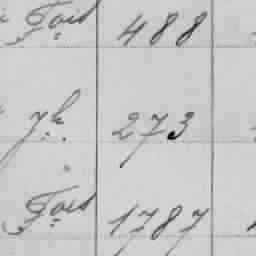 Fois 488
273
Fois 1787